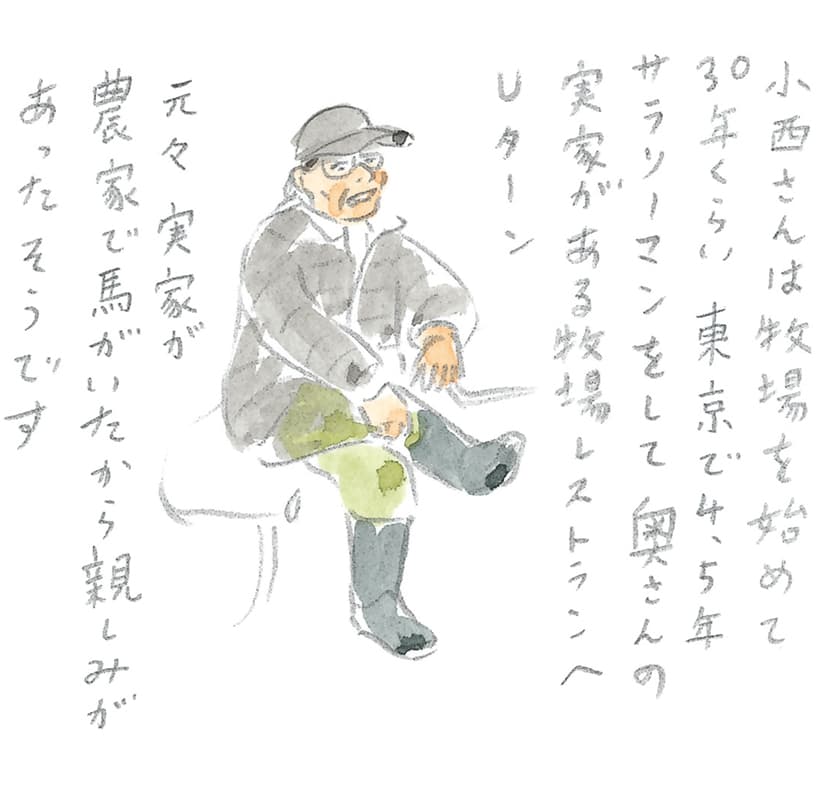 小西さんは牧場を始めて
30年くらい 東京で4、5年
サラリーマンをして 奥さんの
実家がある牧場レストランへ
Uターン
元々 実家が
農家で馬がいたから親しみが
あったそうです